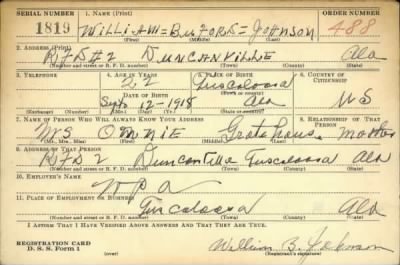 SERIAL NUMBER 1. NAME (Print) ORDER NUMBER
1819 WILLIAM = BUFORD = JOHNSON 488
(First) (Middle) (Last)
2. ADDRESS (Print)
RFD #2 DUNCANVILLE Ala
(Number and street or R. F. D. number) (Town) (County) (State)
3. TELEPHONE 4. AGE IN YEARS 5. PLACE OF BIRTH 6. COUNTRY OF CITIZENSHIP
22 Tuscaloosa
DATE OF BIRTH (Town or county)
Sept. 12-1918 Ala US
(Exchange) (Number) (Mo.) (Day) (Yr.) (State or country)
7. NAME OF PERSON WHO WILL ALWAYS KNOW YOUR ADDRESS 8. RELATIONSHIP OF THAT PERSON
MS OMMIE Mother
(Mr., Mrs., Miss) (First) (Middle) (Last)
9. ADDRESS OF THAT PERSON
RFD 2 Tuscaloosa Ala
(Number and street or R. F. D. number) (Town) (County) (State)
10. EMPLOYER'S NAME
WPA
11. PLACE OF EMPLOYMENT OR BUSINESS
Tuscaloosa Ala
(Number and street or R. F. D. number) (Town) (County) (State)
I AFFIRM THAT I HAVE VERIFIED ABOVE ANSWERS AND THAT THEY ARE TRUE.
REGISTRATION CARD
D. S. S. Form 1 (over) William B. Johnson
(Registrant's signature)